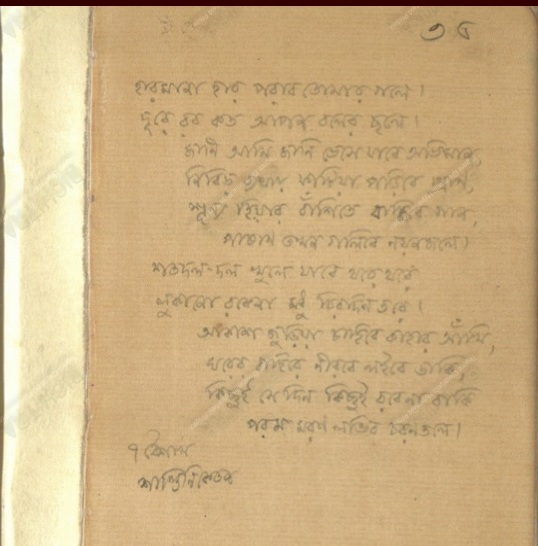 ৩৫
হারমানা হার পরাব তোমার গলে।
দূরে রব কত আপন বলের ছলে।
জানি আমি জানি ভেসে যাবে অভিমান,
নিবিড় ব্যথায় ফাটিয়া পড়িবে প্রাণ,
শূন্য হিয়ার বাঁশিতে বাজিবে গান,
পাষাণ তখন গলিবে নয়নজলে।
শতদল-দল খুলে যাবে থরে থরে
লুকানো রবেনা মধু চিরদিন তরে।
আকাশ জুড়িয়া চাহিবে তাহার আঁখি,
ঘরের বাহিরে নীরবে লইবে ডাকি,
কিছুই সেদিন কিছুই রবেনা বাকি
পরম মরণ লভিব চরণতলে।
৭ বৈশাখ
শান্তিনিকেতন